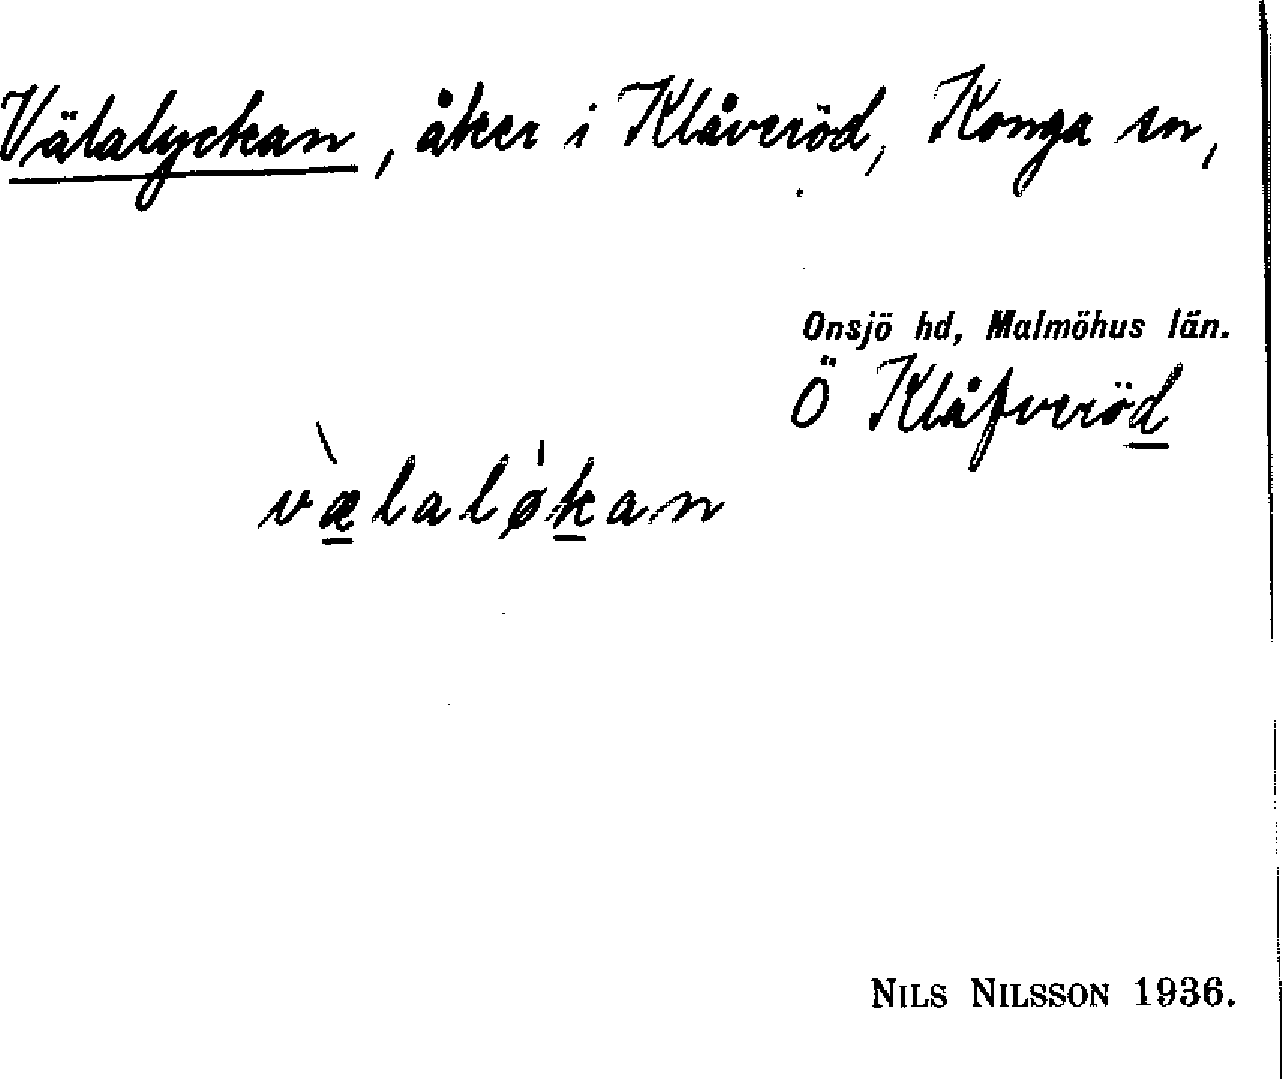 Välalyckan, åker i Klåveröd, Konga sn,
Onsjö hd, Malmöhus län.
Ö Klåfveröd
væ̀lalø̍kan
NILS NILSSON 1936.